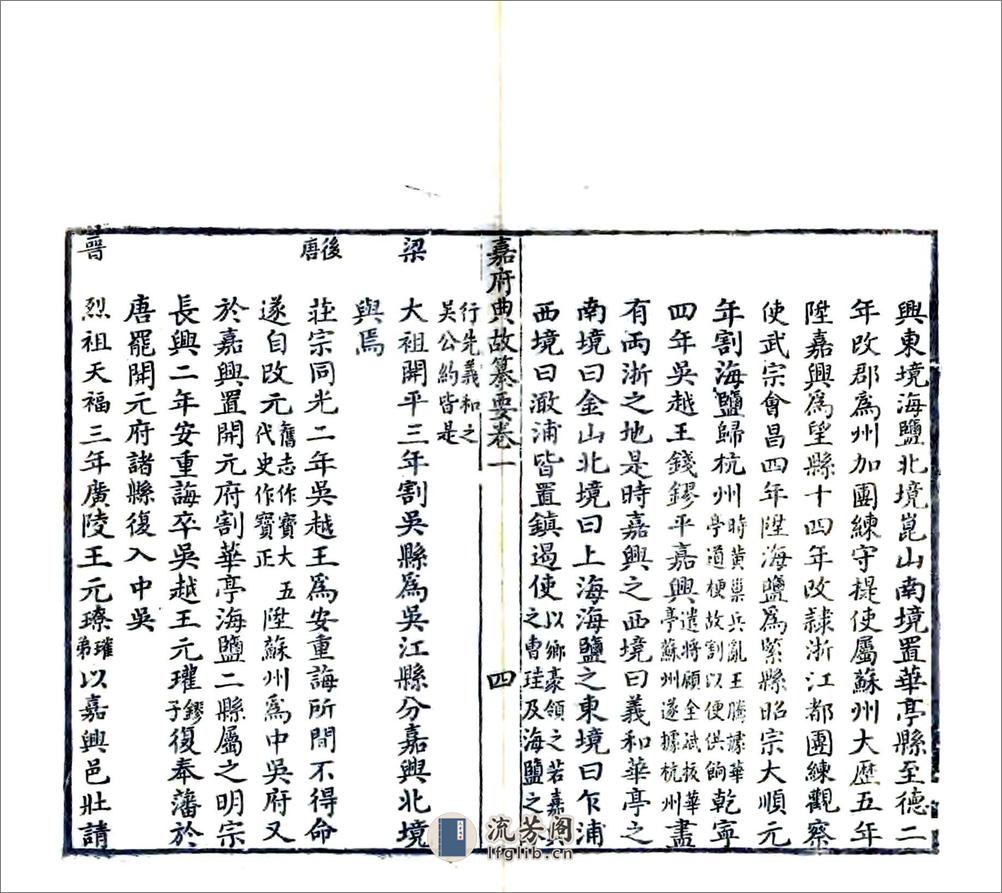 興東境海鹽北境崑山南境置華亭縣至德二
年改郡爲州加團練守捉使屬蘇州大歷五年
陞嘉興爲望縣十四年改隸浙江都團練觀察
使武宗會昌四年陞海鹽爲緊縣昭宗大順元
年割海鹽歸杭州時黄巢兵亂王騰據華亭道梗故割以便供餉乾寧
四年吳越王錢鏐平嘉興遣將顧全武拔華亭蘇州遂據杭州盡
有両浙之地是時嘉興之西境曰義和華亭之
南境曰金山北境曰上海海鹽之東境曰乍浦
西境曰澉浦皆置鎮遏使以鄉豪領之若嘉興之曹珪及海鹽之
嘉府典故纂要卷一
四
行先義和之吳公約皆是
梁
大祖開平三年割吳縣爲吳江縣分嘉興北境
與焉
後唐
莊宗同光二年吳越王爲安重誨所間不得命
遂自改元舊志作寳大五代史作寳正陞蘇州爲中吳府又
於嘉興置開元府割華亭海鹽二縣屬之明宗
長興二年安重誨卒吳越王元瓘鏐子復奉藩於
唐罷開元府諸縣復入中吳
晉
烈祖天福三年廣陵王元璙瓘弟以嘉興邑壯請
流芳阁
lfglib.cn